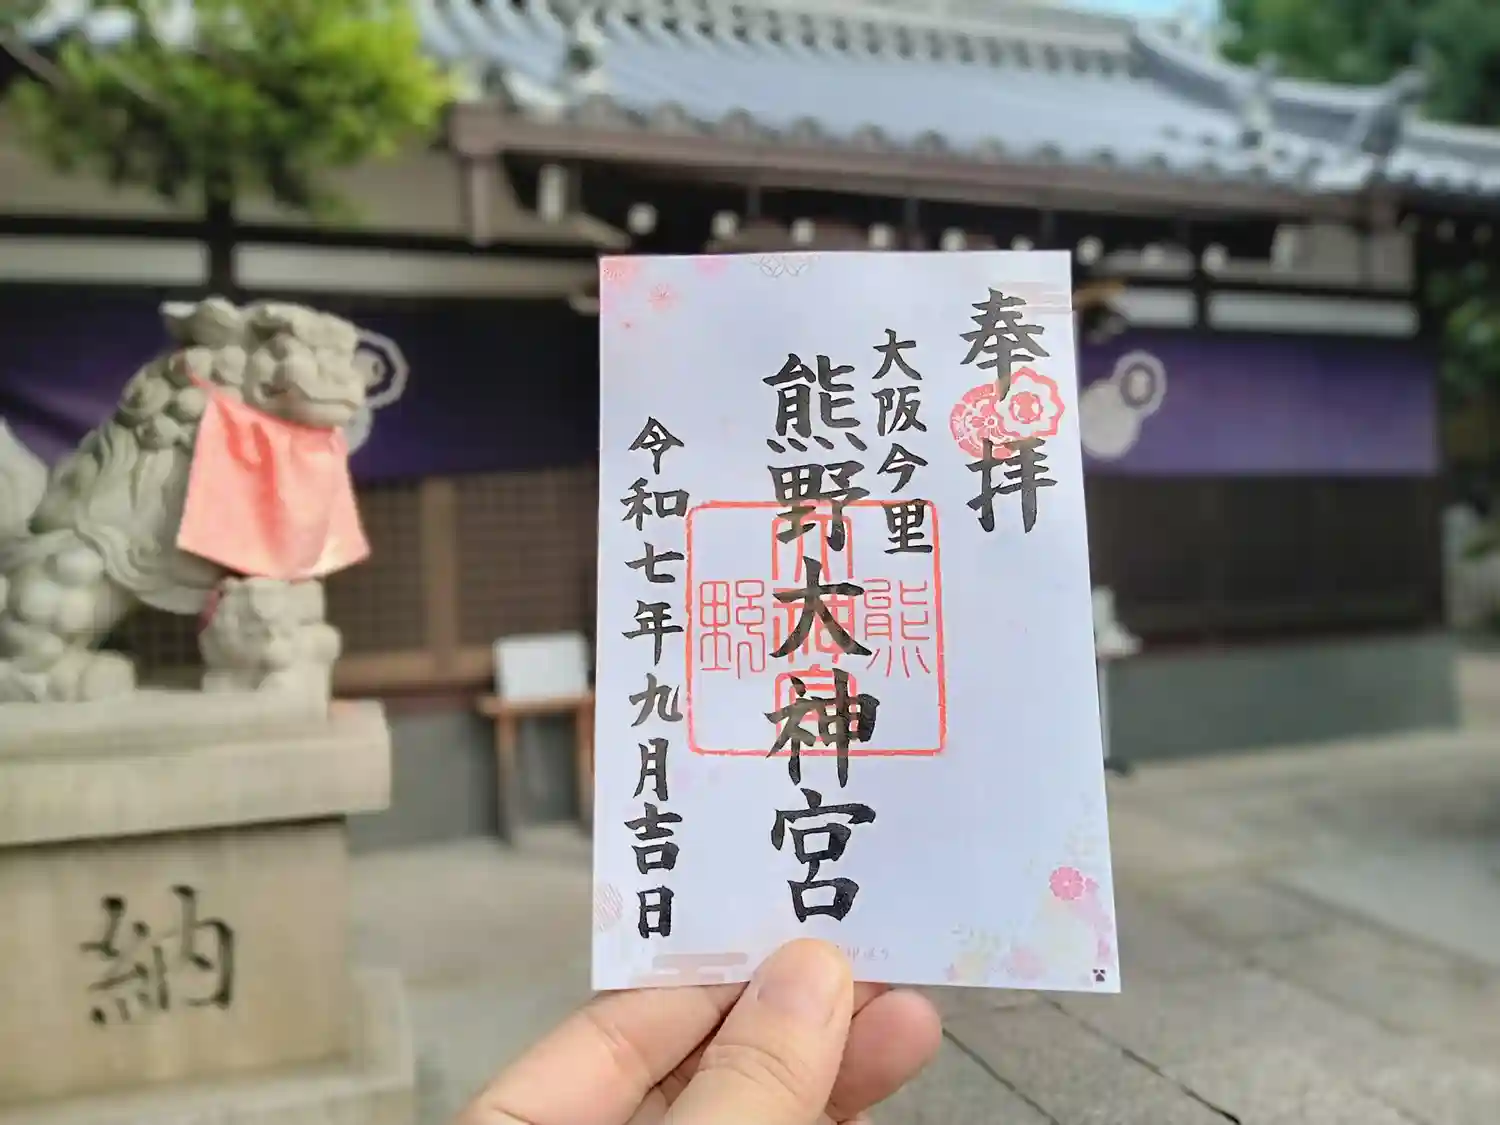 奉拝
大阪今里
熊野大神宮
令和七年九月吉日
熊野大神宮
納